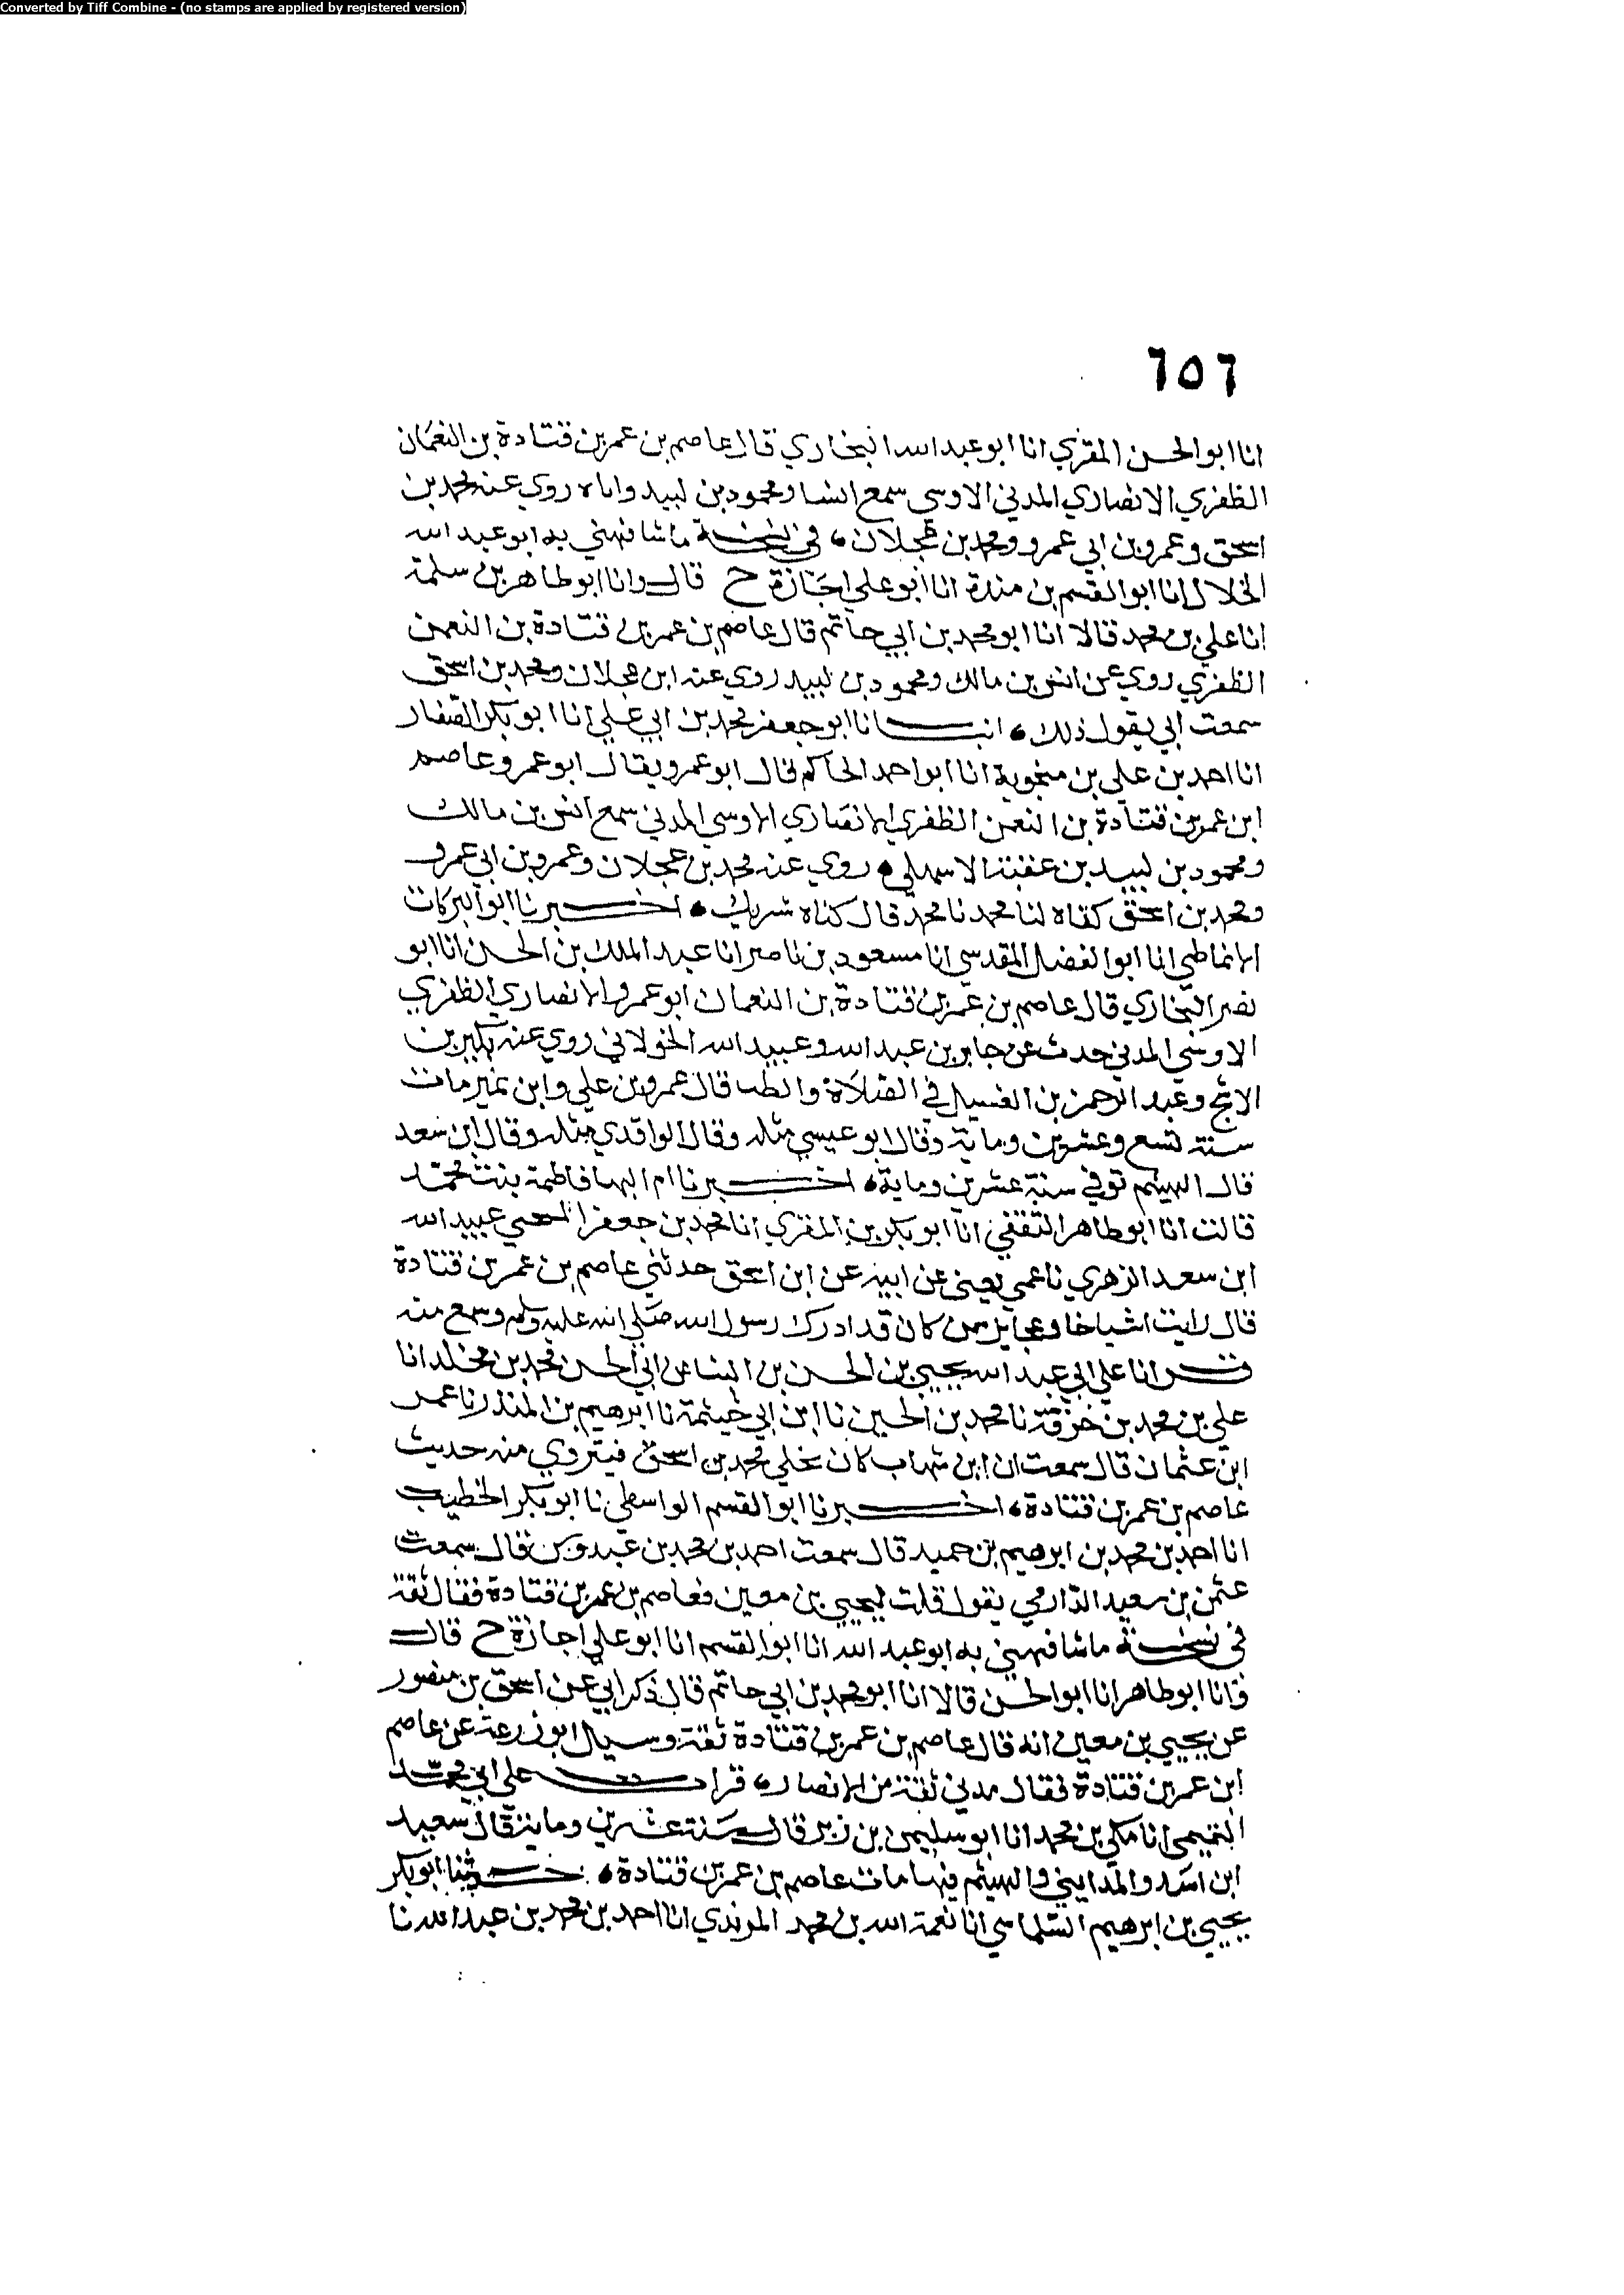 Converted by Tiff Combine - (no stamps are applied by registered version)
٦٥٦
انا ابو الحسن المقري انا ابو عبد الله البخاري قال عاصم بن عمر بن قتادة بن النعمان
الظفري الانصاري المدني الاوسي سمع انسا ومحمود بن لبيد واباه روي عنه محمد بن
اسحق وعمرو بن ابي عمرو ومحمد بن عجلان، في نسخة ما شافهني به ابو عبد الله
الخلال انا ابو القسم بن مندة انا ابو علي اجازة ح قال وانا ابو طاهر بن سلمة
انا علي بن محمد قالا انا ابو محمد بن ابي حاتم قال عاصم بن عمر بن قتادة بن النعمن
الظفري روي عن انس بن مالك ومحمود بن لبيد روي عنه ابن عجلان ومحمد بن اسحق
سمعت ابي يقول ذلك، انبـــانا ابو جعفر محمد بن ابي علي انا ابو بكر الصفار
انا احمد بن علي بن منجوية انا ابو احمد الحاكم قال ابو عمرو يقال ابو عمرو عاصم
ابن عمر بن قتادة بن النعمن الظفري الانصاري الاوسي المدني سمع انس بن مالك
ومحمود بن لبيد بن عقبة الاسهلي، روي عنه محمد بن عجلان وعمرو بن ابي عمرو
ومحمد بن اسحق كناه لنا محمد نا محمد قال كناه شريك، اخـــبرنا ابو البركات
الانماطي انا ابو الفضل المقدسي انا مسعود بن ناصر انا عبد الملك بن الحسن انا ابو
نصر البخاري قال عاصم بن عمر بن قتادة بن النعمان ابو عمرو الانصاري الظفري
الاوسي المدني حدث عن جابر بن عبد الله وعبيد الله الخولاني روي عنه بكير بن
الاشج وعبد الرحمن بن الغسيل في الصلاة والطب قال عمرو بن علي وابن نمير مات
سنة تسع وعشرين وماية وقال ابو عيسي مثله وقال الواقدي مثله وقال ابن سعد
قال الهيثم توفي سنة عشرين وماية، اخـــبرنا ام البها فاطمة بنت محمد
قالت انا ابو طاهر الثقفي انا ابو بكر بن المقري انا محمد بن جعفر عبيد الله
ابن سعد الزهري نا عمي يعني عن ابيه عن ابن اسحق حدثني عاصم بن عمر بن قتادة
قال رايت اشياخا وعجايز من كان قد ادرك رسول الله صلى الله عليه وسلم وسمع منه
قـــرانا علي ابي عبد الله يحيي بن الحسن بن البنا عن ابي الحسن محمد بن مخلد انا
علي بن محمد بن خزفة نا محمد بن الحسين نا ابن ابي خيثمة نا ابرهيم بن المنذر نا عمر
ابن عثمان قال سمعت ان ابن شهاب كان علي محمد بن اسحق فيتروي منه حديث
عاصم بن عمر بن قتادة، اخـــبرنا ابو القسم الواسطي نا ابو بكر الخطيب
انا احمد بن محمد بن ابرهيم بن حميد قال سمعت احمد بن محمد بن عبدوس قال سمعت
عثمن بن سعيد الدارمي يقول قلت ليحيي بن معين فعاصم بن عمر بن قتادة فقال ثقة
في نسخة ما شافهني به ابو عبد الله انا ابو القسم انا ابو علي اجازة ح قال
وانا ابو طاهر انا ابو الحسن قالا انا ابو محمد بن ابي حاتم قال ذكر ابي عن اسحق بن منصور
عن يحيي بن معين انه قال عاصم بن عمر بن قتادة ثقة وسيل ابو زرعة عن عاصم
ابن عمر بن قتادة فقال مدني ثقة من الانصار، قرات علي ابي محمد
التميمي انا مكي بن محمد انا ابو سليمن بن زبر قال سنة عشرين وماية قال سعيد
ابن اسد والمدايني والهيثم فيها مات عاصم بن عمر بن قتادة، حـــدثنا ابو بكر
يحيي بن ابرهيم السلماسي انا نعمة الله بن محمد المرندي انا احمد بن محمد بن عبد الله نا